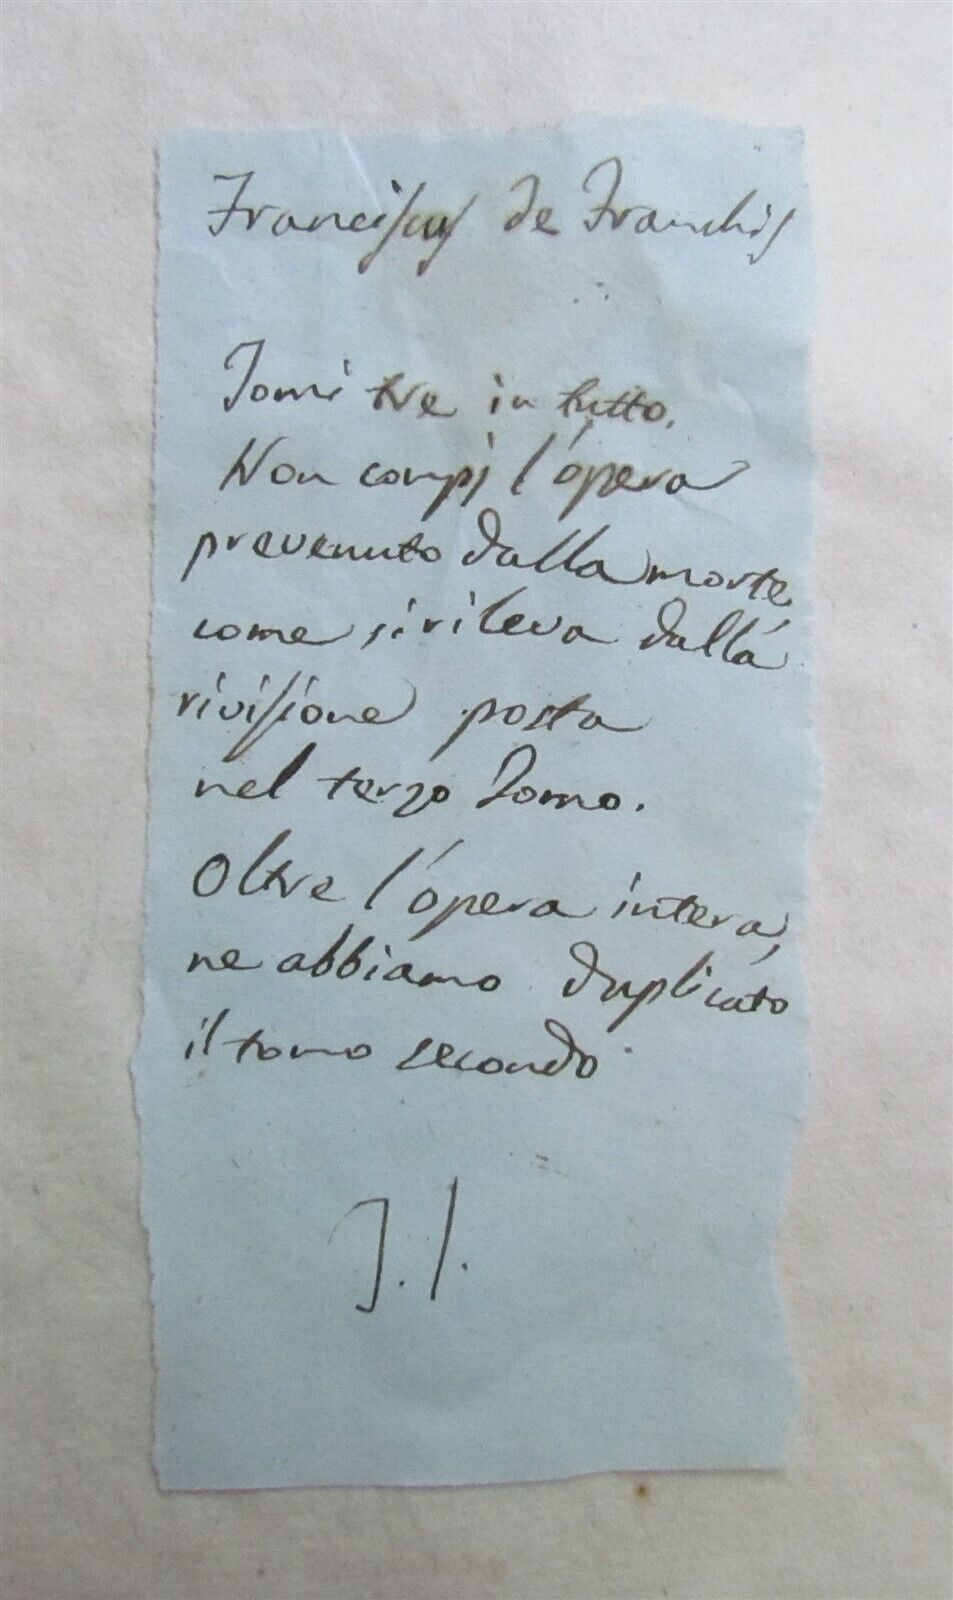 Franciscus de Franchis
Tomi tre in tutto.
Non compj l'opera
prevenuto dalla morte,
come si rileva dalla
rivisione posta
nel terzo Tomo.
Oltre l'opera intera,
ne abbiamo duplicato
il tomo secondo.